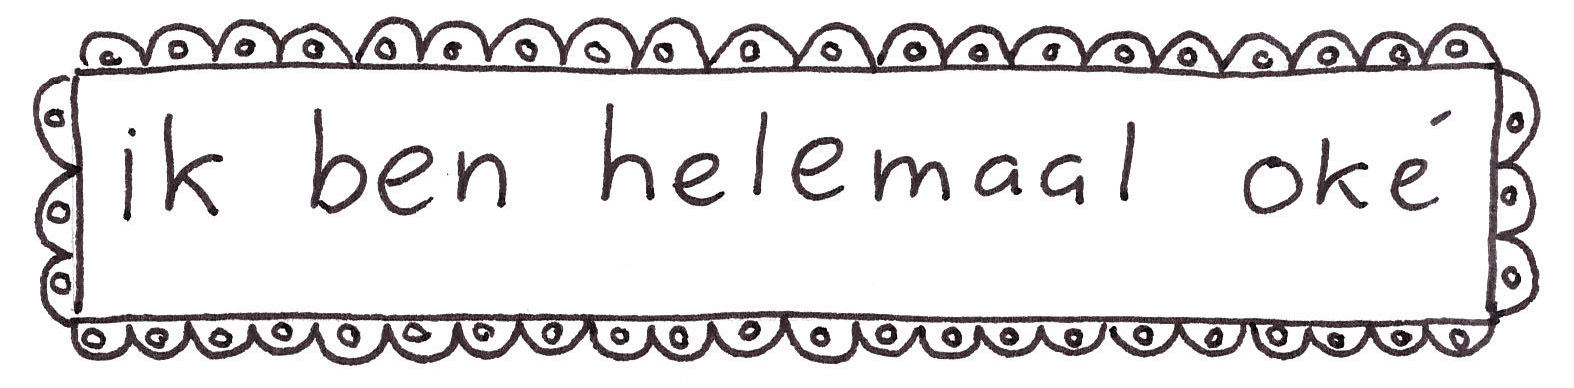 ik ben helemaal oké